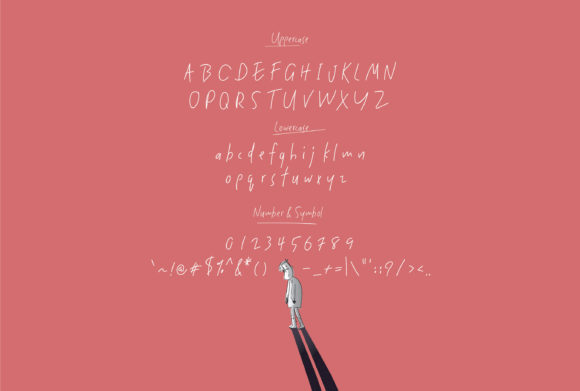 Uppercase
A B C D E F G H I J K L M N
O P Q R S T U V W X Y Z
Lowercase
a b c d e f g h i j k l m n
o p q r s t u w x y z
Number & Symbol
0 1 2 3 4 5 6 7 8 9
` ~ ! @ # $ % ^ & * ( ) - _ + = | \ " ' : ; ? / > < . .